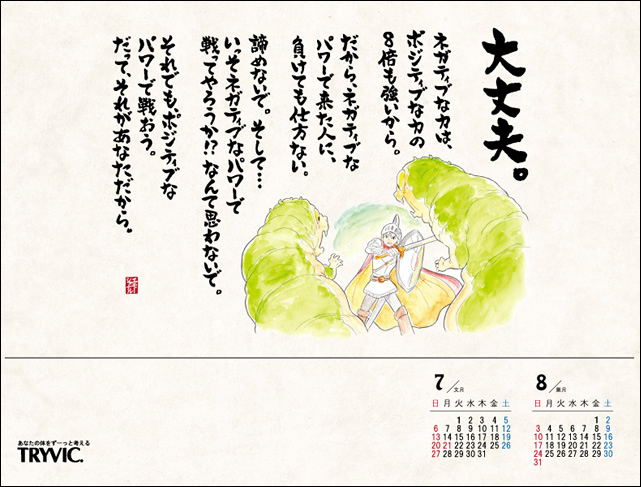 大丈夫。
ネガティブな力は、
ポジティブな力の
8倍も強いから。
だから、ネガティブな
パワーで来た人に、
負けても仕方ない。
諦めないで。そして…
いっそネガティブなパワーで
戦ってやろうか!?なんて思わないで。
それでも、ポジティブな
パワーで戦おう。
だって、それがあなただから。
7／文月
日 月 火 水 木 金 土
1 2 3 4 5
6 7 8 9 10 11 12
13 14 15 16 17 18 19
20 21 22 23 24 25 26
27 28 29 30 31
8／葉月
日 月 火 水 木 金 土
1 2
3 4 5 6 7 8 9
10 11 12 13 14 15 16
17 18 19 20 21 22 23
24 25 26 27 28 29 30
31
あなたの体をずーっと考える
TRYVIC.